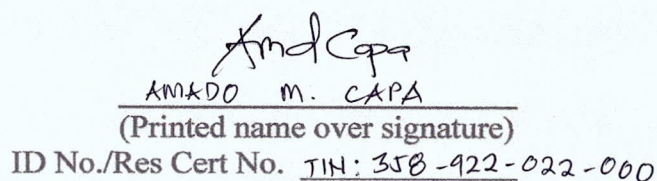 Amd Capa
AMADO M. CAPA
(Printed name over signature)
ID No./Res Cert No. TIN: 358-922-022-000